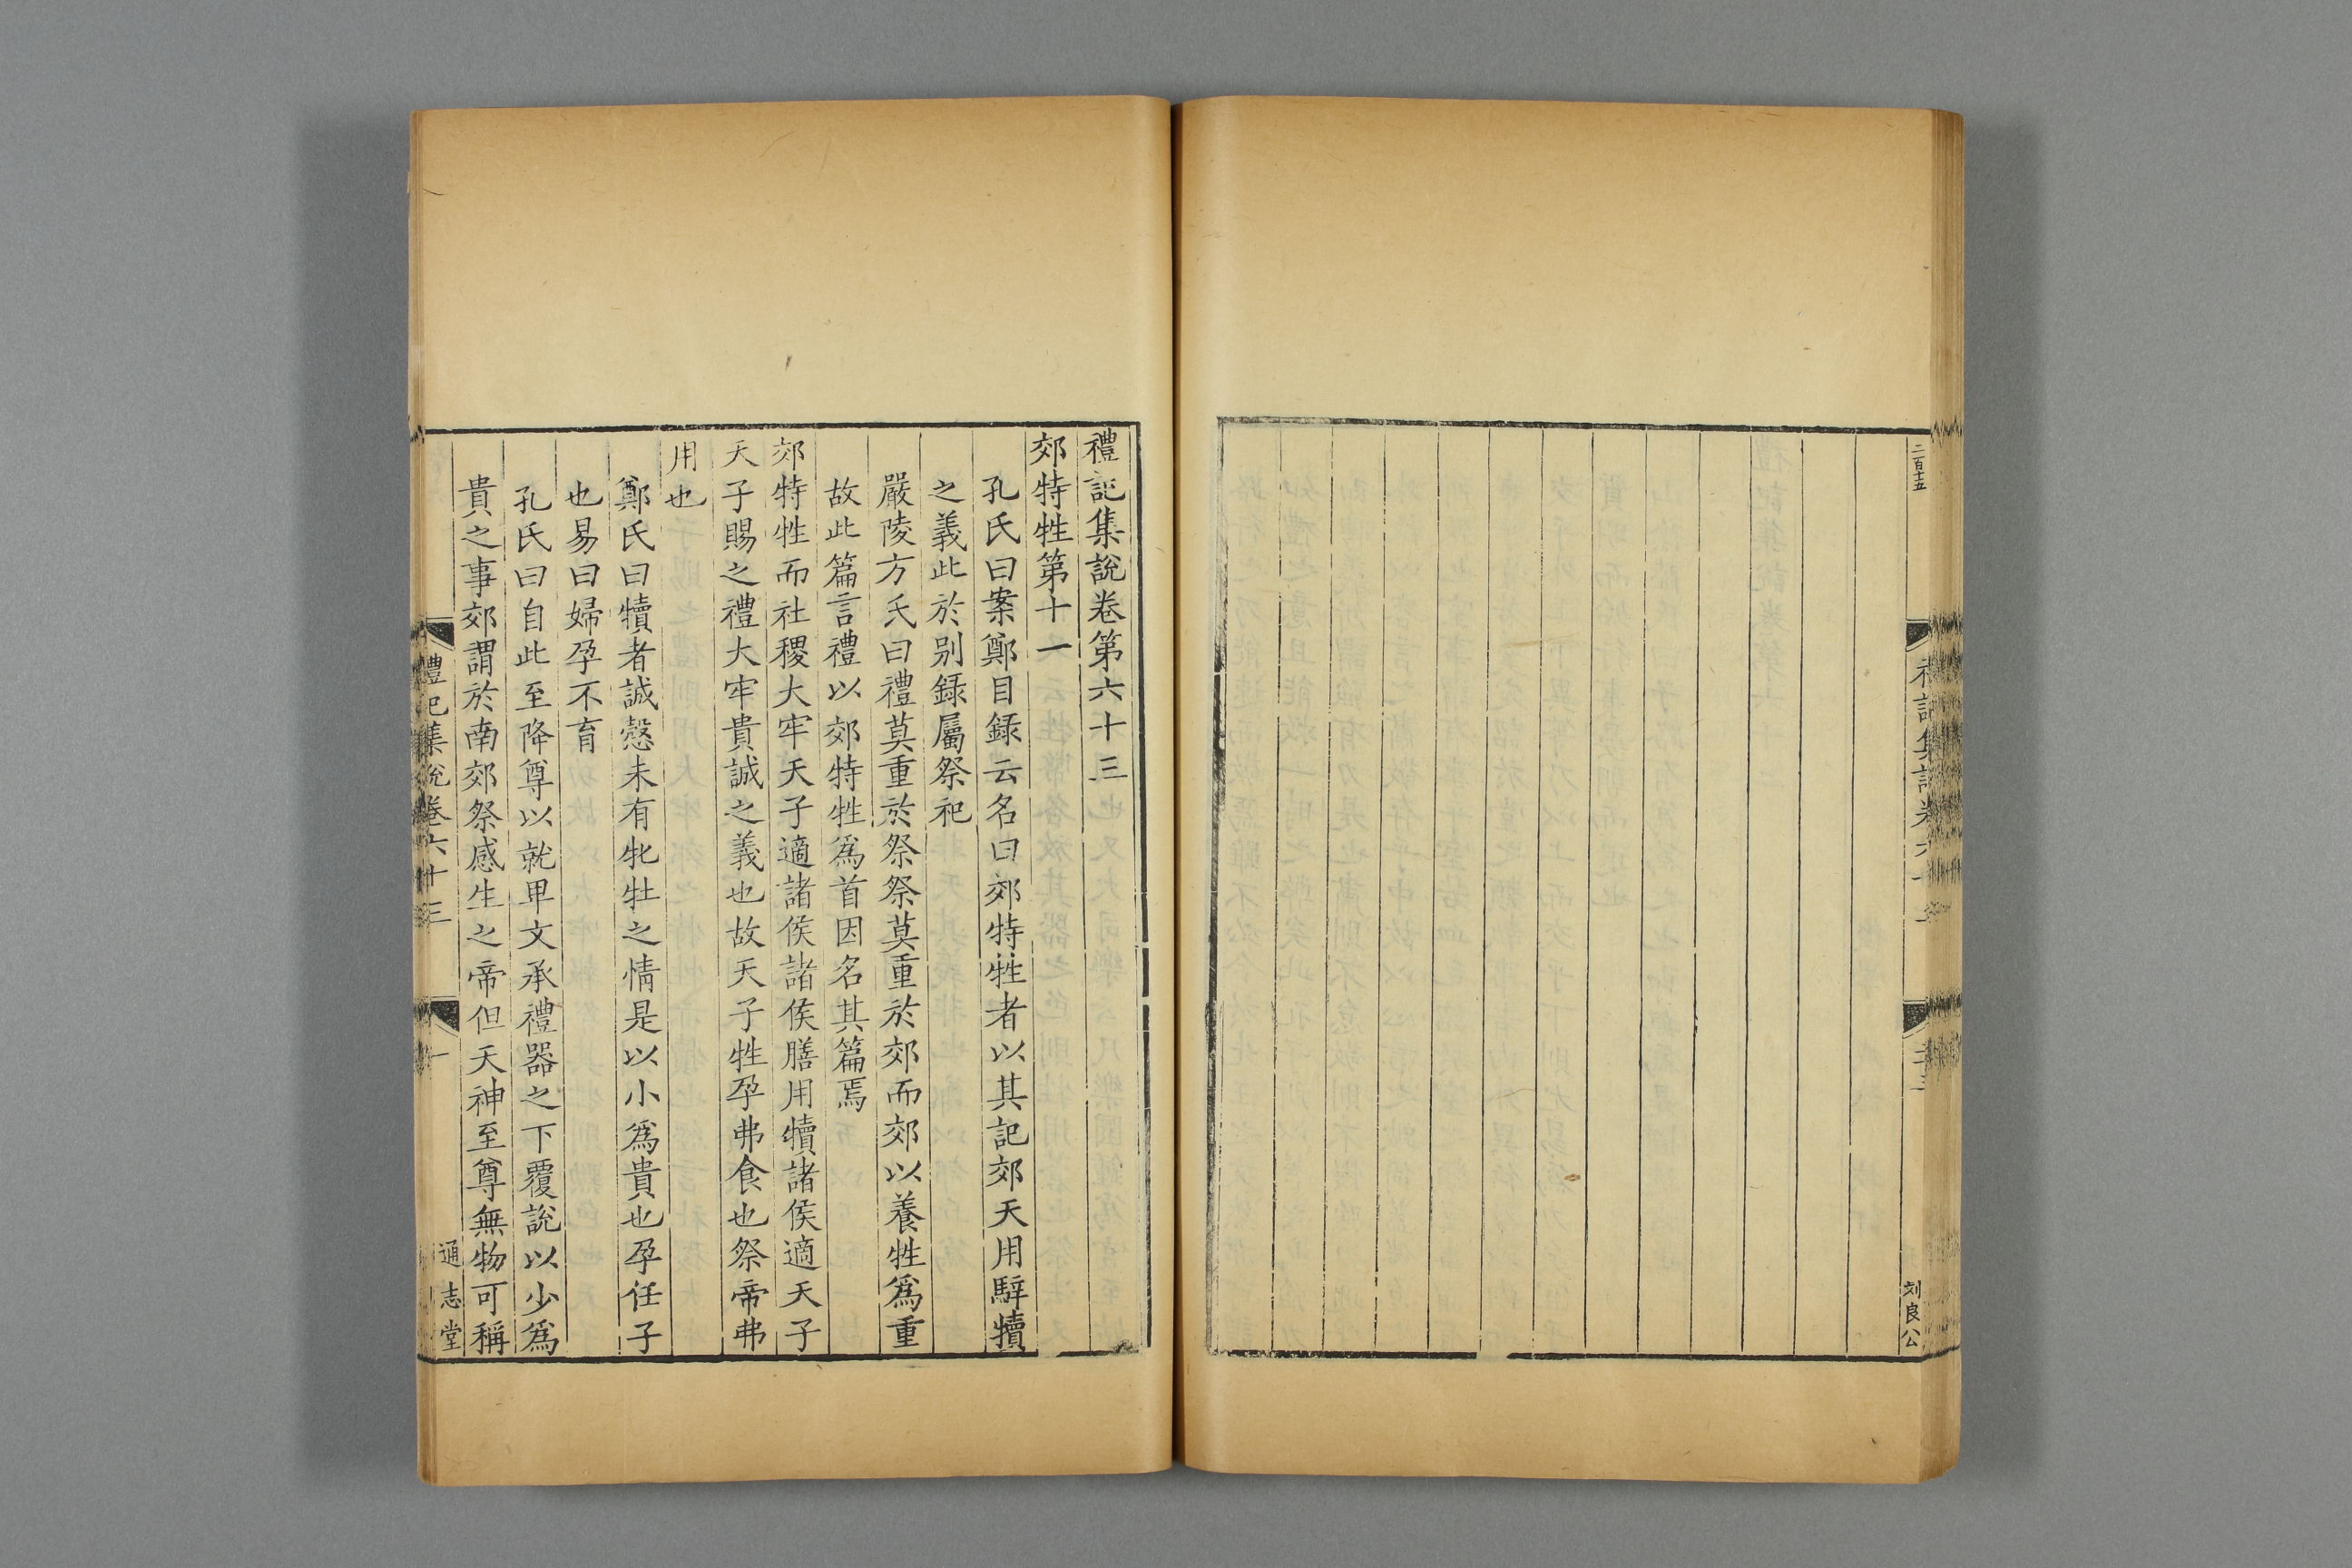 二百十五
刘良公
禮記集說卷第六十三
郊特牲第十一
孔氏曰案鄭目録云名曰郊特牲者以其記郊天用騂犢
之義此於别録屬祭祀
嚴陵方氏曰禮莫重於祭祭莫重於郊而郊以養牲爲重
故此篇言禮以郊特牲爲首因名其篇焉
郊特牲而社稷大牢天子適諸侯諸侯膳用犢諸侯適天子
天子賜之禮大牢貴誠之義也故天子牲孕弗食也祭帝弗
用也
鄭氏曰犢者誠慤未有牝牡之情是以小爲貴也孕任子
也易曰婦孕不育
孔氏曰自此至降尊以就卑文承禮器之下覆說以少爲
貴之事郊謂於南郊祭感生之帝但天神至尊無物可稱
禮記集說卷六十三
一
通志堂